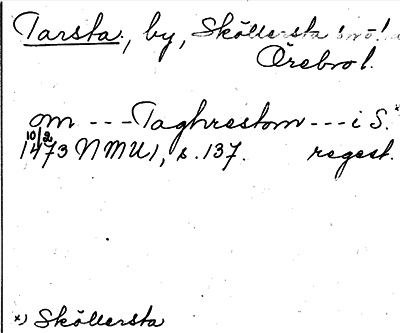 Tarsta, by, Sköllersta
Örebro l.
om --- Taghrestom --- i S.*
10/2
1473 NMU 1, s. 137. regest.
*) Sköllersta